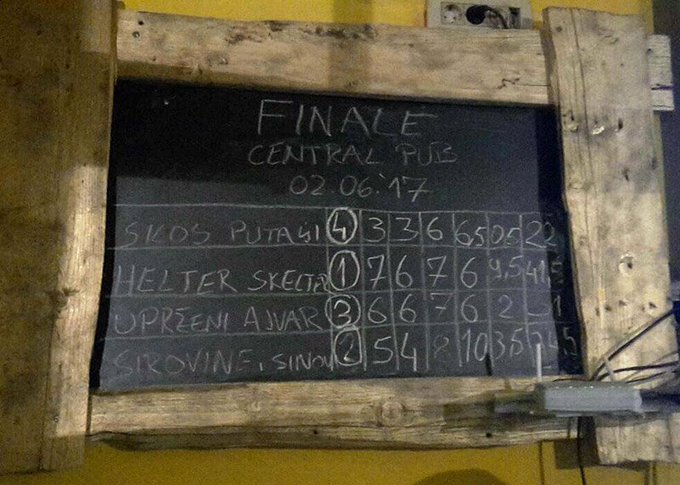 FINALE
CENTRAL PUB
02.06.'17
PUTAŠI 4 3 3 6 6,5 0,5 22
HELTER SKELTR 1 7 6 7 6 9,5 41,5
UPRŽENI AJVAR 3 6 6 7 6 2
SIROVINE, SINOV 2 5 4 10 3,5